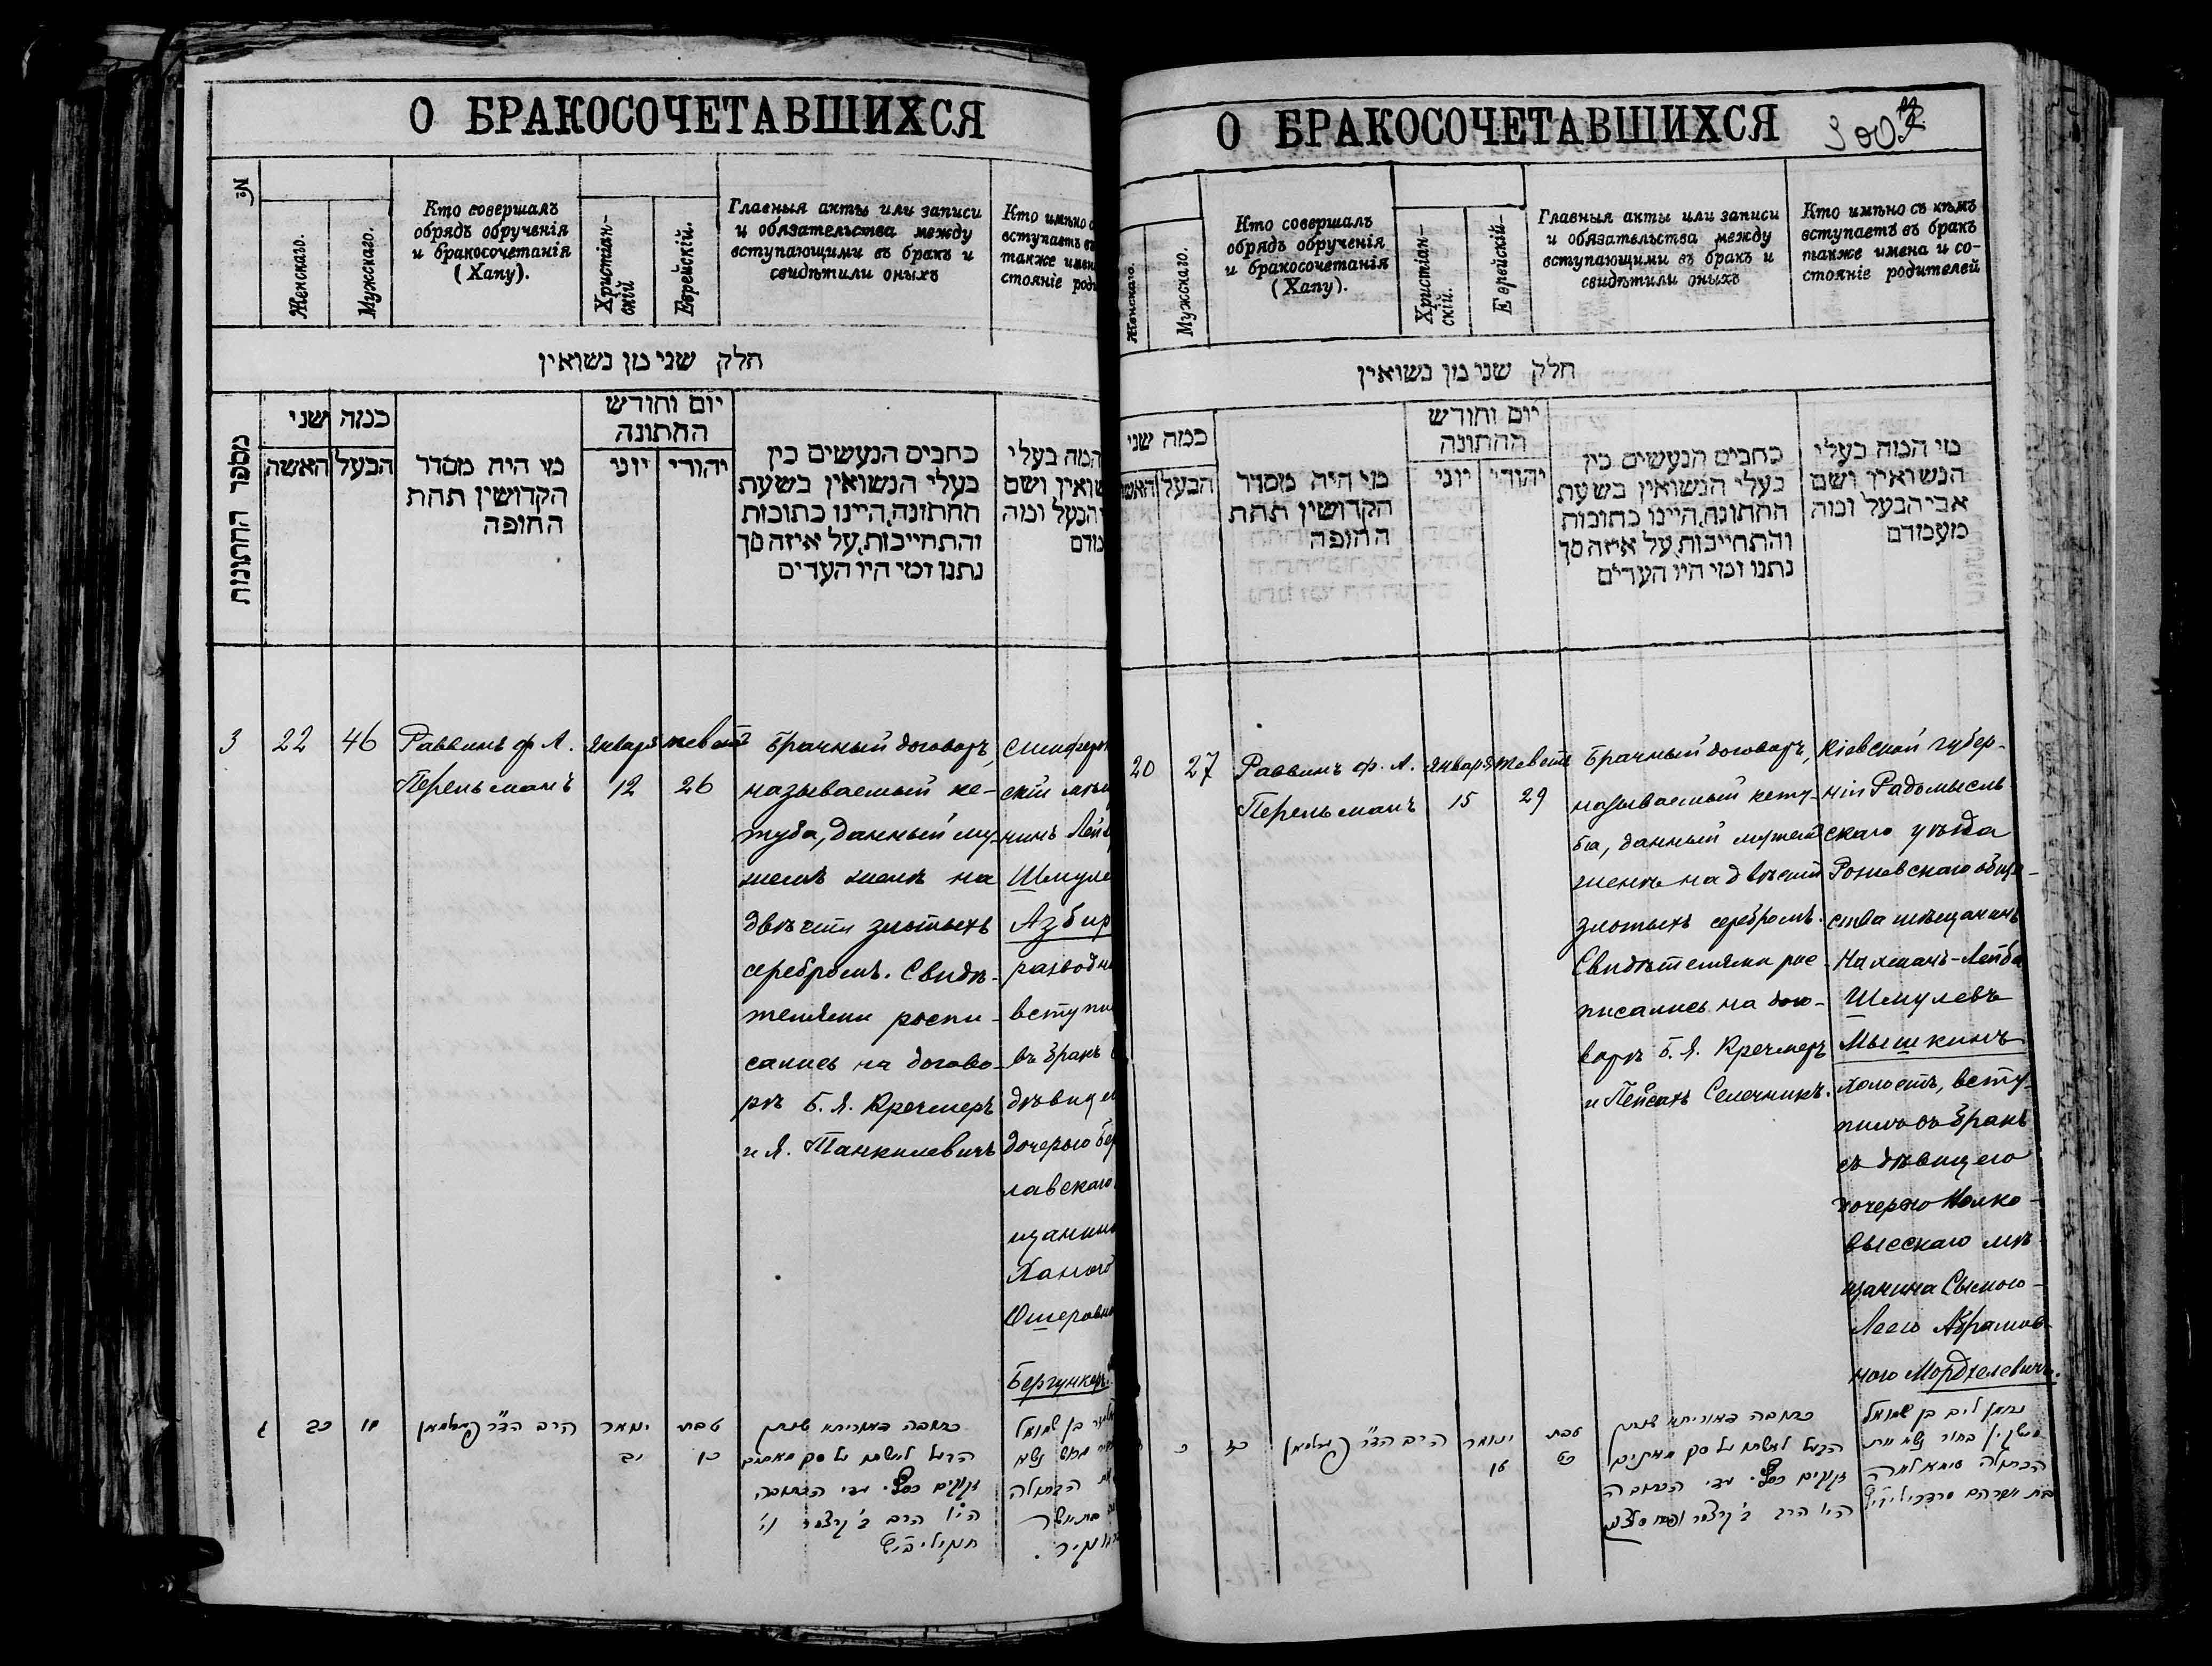 О БРАКОСОЧЕТАВШИХСЯ
№
Женскаго.
Мужскаго.
Кто совершалъ
обрядъ обрученія
и бракосочетанія
(Хапу).
Христіан-
скій
Еврейскій.
Главныя акты или записи
и обязательства между
вступающими въ бракъ и
свидѣтили оныхъ
Кто имѣно с
вступаетъ въ
также имен
стояніе роди
חלק שני מן נשואין
מספר החתונות
כמה שני
האשה
הבעל
מי היה מסדר
הקדושין תחת
החופה
יום וחודש
החתונה
יוני
יהודי
כתבים הנעשים בין
בעלי הנשואין בשעת
החתונה, היינו כתובות
והתחייבות, על איזה סך
נתנו ומי היו העדים
המה בעלי
שואין ושם
הבעל ומה
מדם
3
22
46
Раввинъ ф А.
Перельманъ
Января
12
Тевета
26
Брачный договоръ,
называемый ке-
туба, данный му-
жемъ женѣ на
двѣсти злотыхъ
серебромъ. Свидѣ-
телями роспи-
сались на догово-
рѣ Б. Я. Кречмеръ
и Я. Танкилевичъ
Симферо
скій мѣщ
нинъ Лейз
Шмуле
Азбир
разводн
вступи
въ бракъ
дѣвицею
дочерью Бер
лавскаго
щанина
Ханою
Ошеровно
Бергункеръ
ג
כב
מו
הרב הד״ר פערלמאן
ינואר
יב
טבת
כו
כתובה דאוריתא שנתן
הבעל לאשתו על סך מאתים
זקוקים כסף. עדי הכתובה
היו הרב ב׳ קרצמר וי׳
טנקיליביץ
בן שמואל
גרוש נשא
הבתולה
О БРАКОСОЧЕТАВШИХСЯ
Женскаго.
Мужскаго.
Кто совершалъ
обрядъ обрученія
и бракосочетанія
(Хапу).
Христіан-
скій.
Еврейскій-
Главныя акты или записи
и обязательства между
вступающими въ бракъ и
свидѣтили оныхъ
Кто имѣно съ кѣмъ
вступаетъ въ бракъ
также имена и со-
стояніе родителей
חלק שני מן נשואין
כמה שני
האש
הבעל
מי היה מסדר
הקדושין תחת
החופה
יום וחודש
החתונה
יוני
יהודי
כתבים הנעשים בין
בעלי הנשואין בשעת
החתונה, היינו כתובות
והתחייבות, על איזה סך
נתנו ומי היו העדים
מי המה בעלי
הנשואין ושם
אבי הבעל ומה
מעמדם
20
27
Раввинъ ф. А.
Перельманъ
Января
15
Тевета
29
Брачный договоръ,
называемый кету-
ба, данный мужемъ
женѣ на двѣсти
злотыхъ серебромъ.
Свидѣтелями рос-
писались на дого-
ворѣ Б. Я. Кречмеръ
и Пейсахъ Селечникъ.
Кіевской губер-
ніи Радомысль
скаго уѣзда
Рожевскаго обще-
ства мѣщанинъ
Нахманъ-Лейба
Шмулевъ
Мышкинъ
холостъ, всту-
пилъ въ бракъ
съ дѣвицею
дочерью Волко-
высскаго мѣ-
щанина Сымою-
Леею Абрамов-
ною Мордхелевичъ.
כ
כז
הרב הד״ר פערלמאן
ינואר
טו
טבת
כט
כתובה דאוריתא שנתן
הבעל לאשתו על סך מאתים
זקוקים כסף. עדי הכתובה
היו הרב ב׳ קרצמר
נחמן ליב בן שמואל
מישקין בחור נשא את
הבתולה סימא לאה
בת אברהם מרדכיליביץ